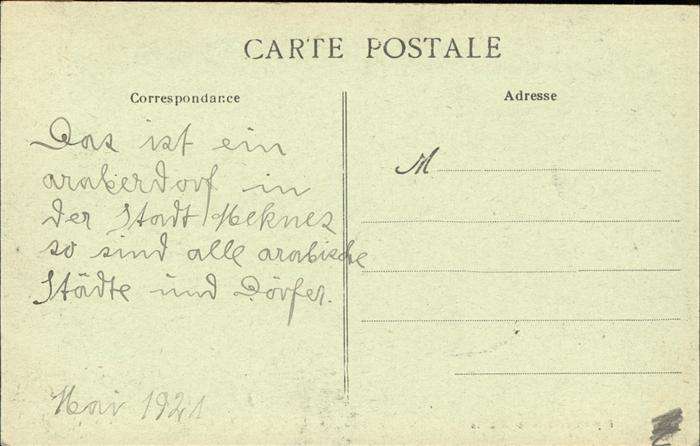 CARTE POSTALE
Correspondance
Das ist ein
araberdorf in
der Stadt Meknes
so sind alle arabische
Städte und Dörfer.
Mai 1921
Adresse
M